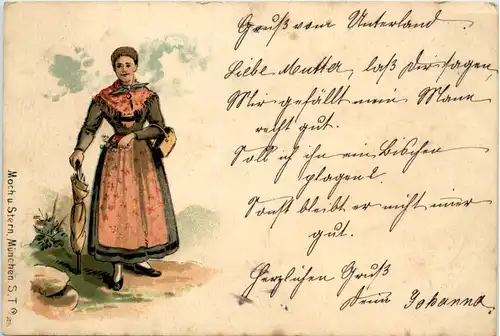 Gruß vom Unterland
Liebe Mutter, laß Dir sagen,
Mir gefällt mein Mann
recht gut.
Soll ich ihn ein Bischen
plagen?
Sonst bleibt er nicht immer
gut.
Herzlichen Gruß
Deine Johanna
Moch u. Stern, München S. T.